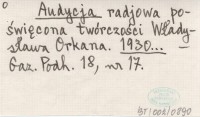 0
Audycja radjowa po-
święcona twórczości Włady-
sława Orkana. 1930... —
Gaz. Podh. 18, nr 17.
BT/006/0890